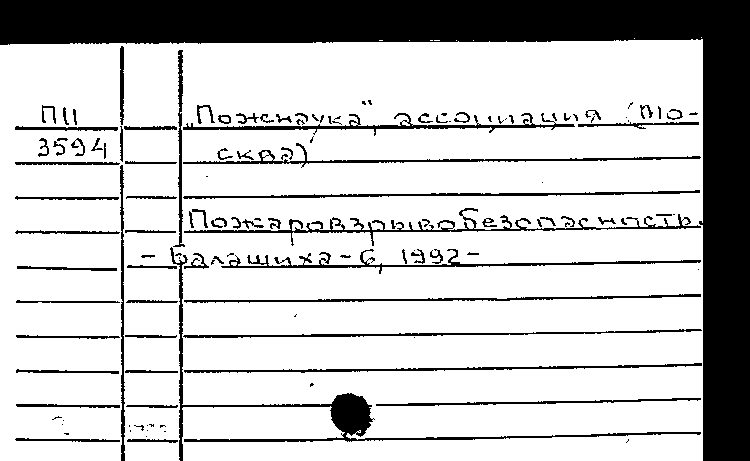 П11 „Пожнаука", ассоциация (Мо-
3594 сква)
Пожаровзрывобезопасность.
- Балашиха-6, 1992-